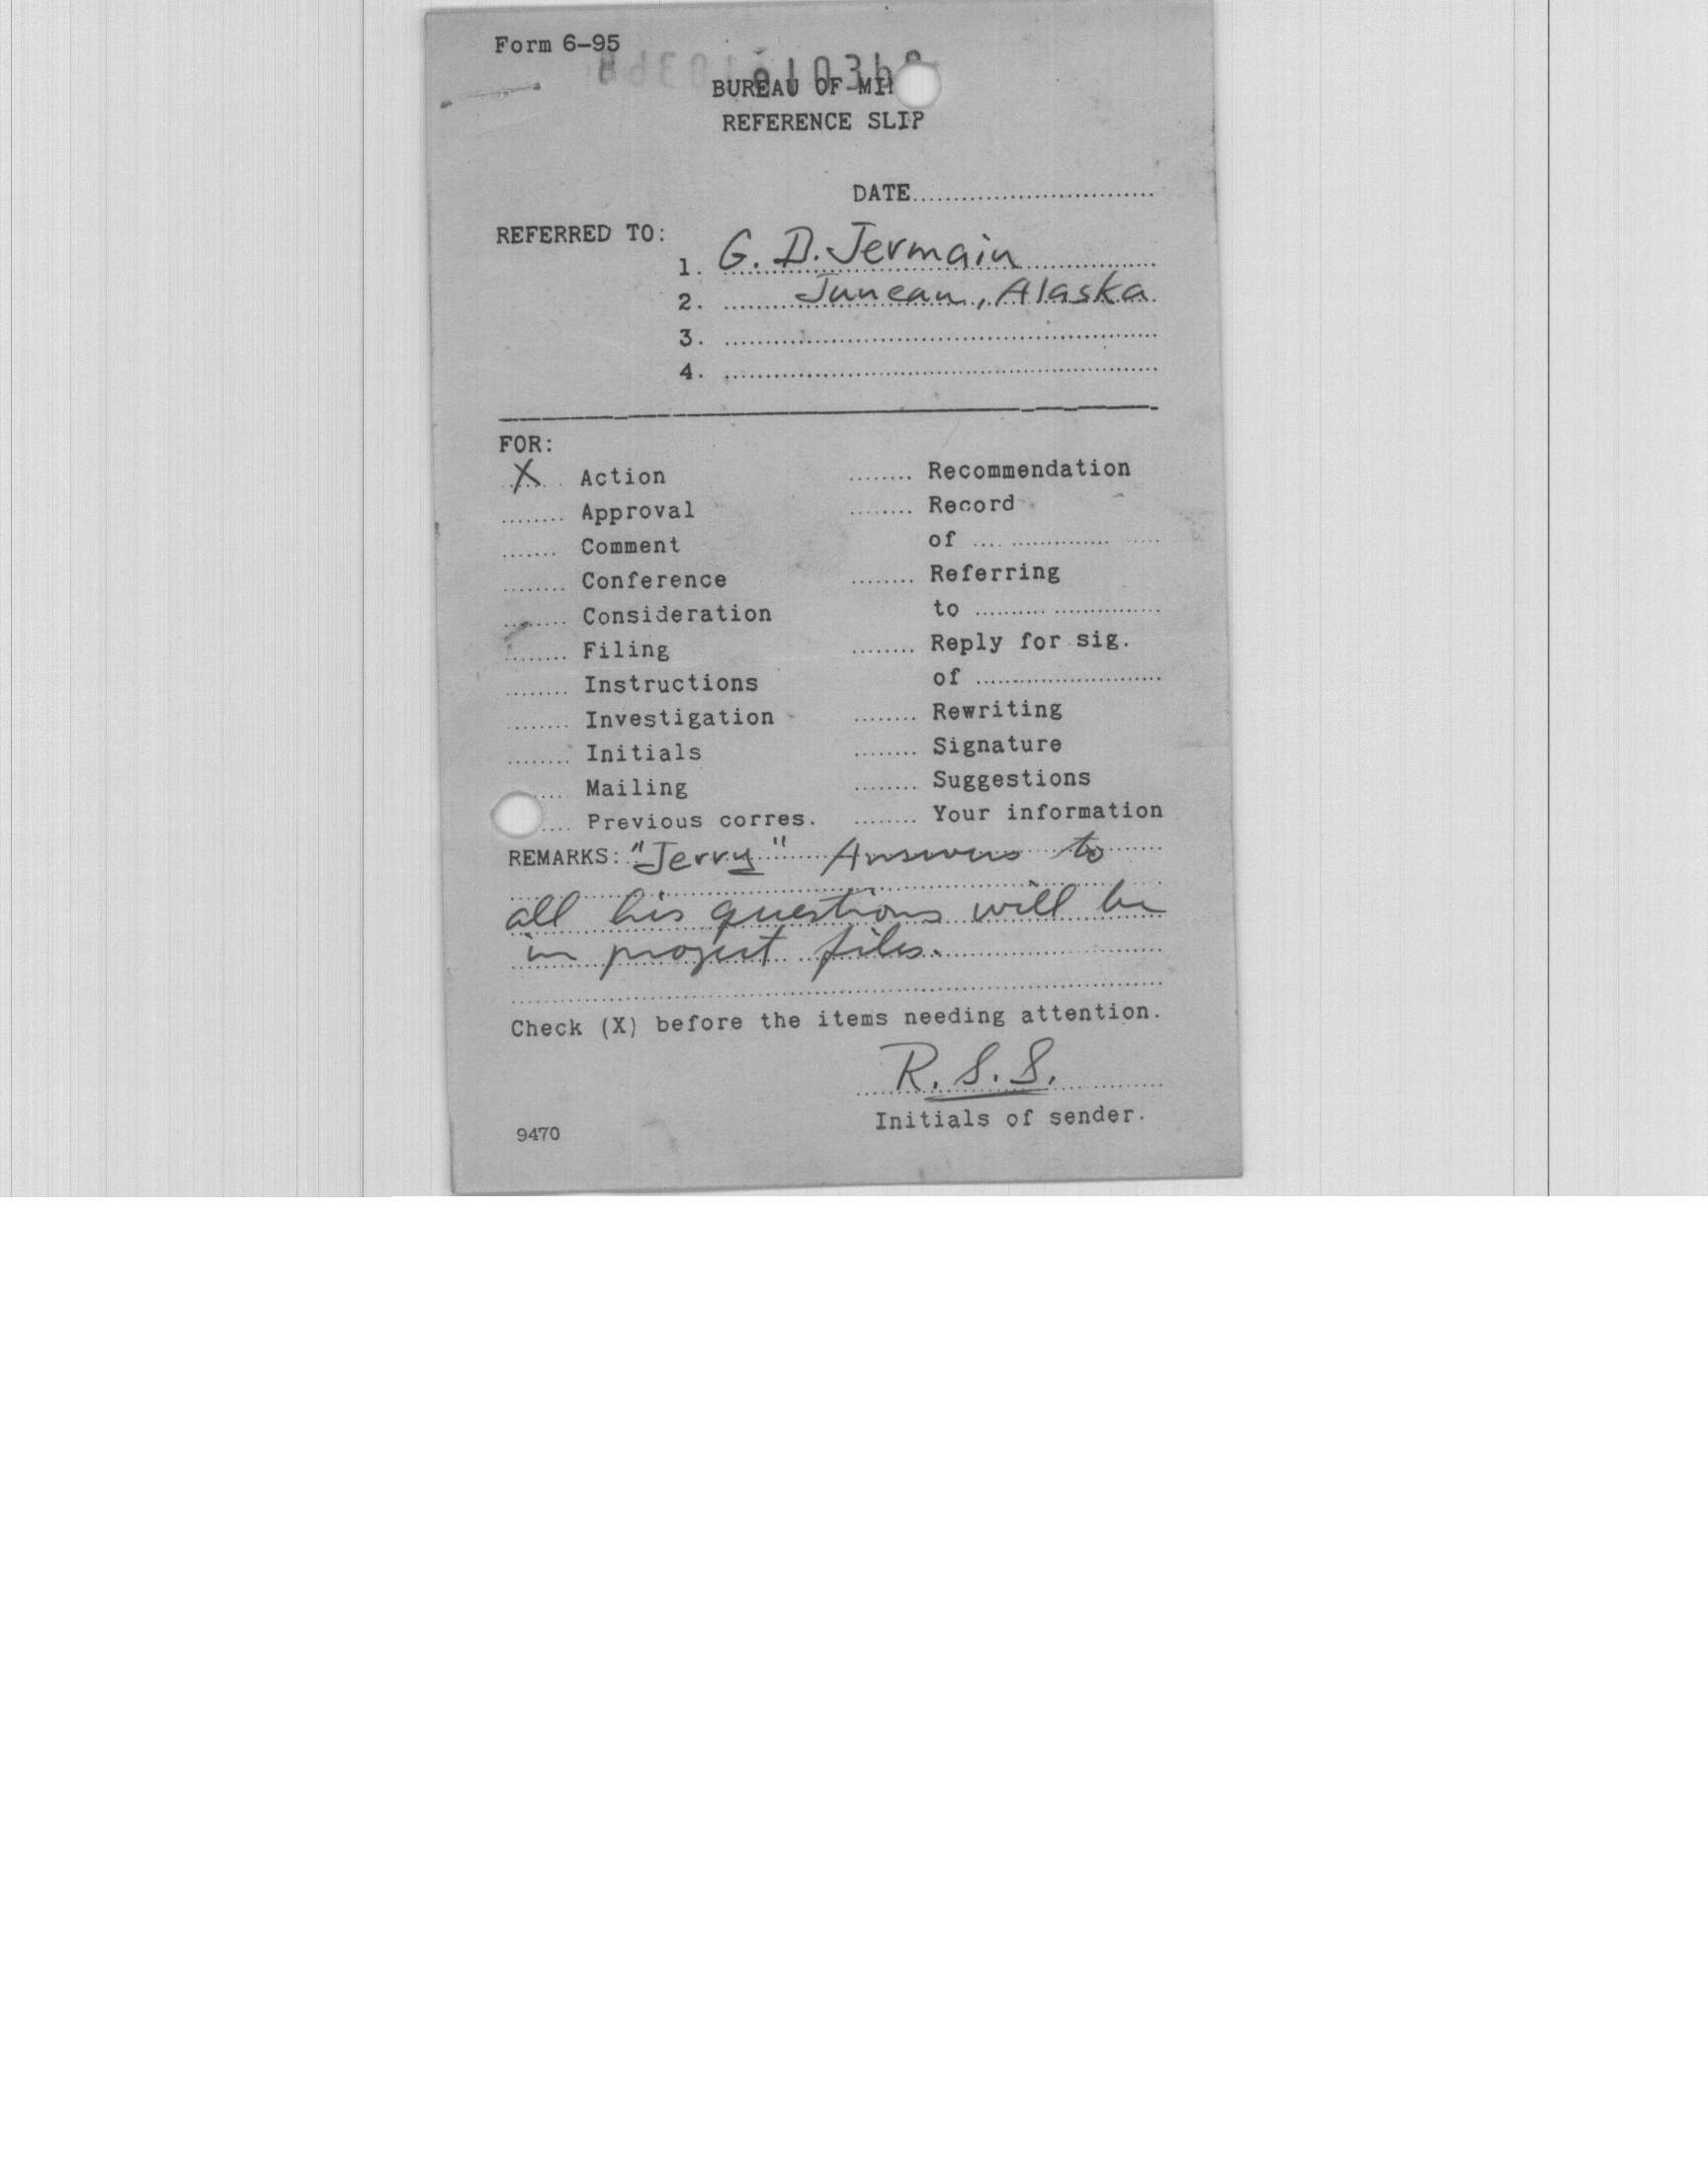 Form 6-95
BUREAU OF MI
REFERENCE SLIP
DATE
REFERRED TO:
1. G. D. Jermain
2. Juneau, Alaska
3.
4.
FOR:
X Action
Approval
Comment
Conference
Consideration
Filing
Instructions
Investigation
Initials
Mailing
Previous corres.
Recommendation
Record
of
Referring
to
Reply for sig.
of
Rewriting
Signature
Suggestions
Your information
REMARKS: "Jerry" Answers to
all his questions will be
in project files.
Check (X) before the items needing attention.
R.S.S.
Initials of sender.
9470